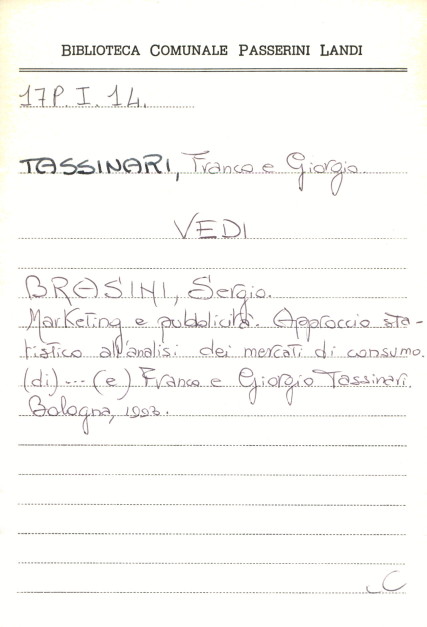 BIBLIOTECA COMUNALE PASSERINI LANDI
17P. I. 14.
TASSINARI, Franco e Giorgio.
VEDI
BRASINI, Sergio.
Marketing e pubblicità. Approccio sta-
tistico all'analisi dei mercati di consumo.
(di) --- (e) Franco e Giorgio Tassinari.
Bologna, 1993.